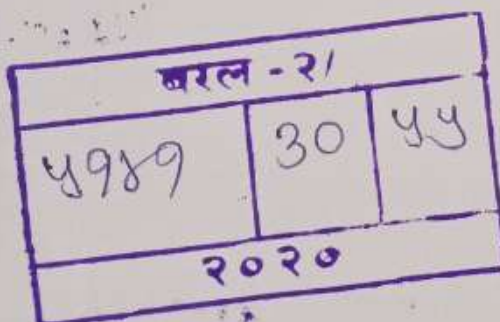 बरल - २/
५१४१ 30 ५५
२०२०